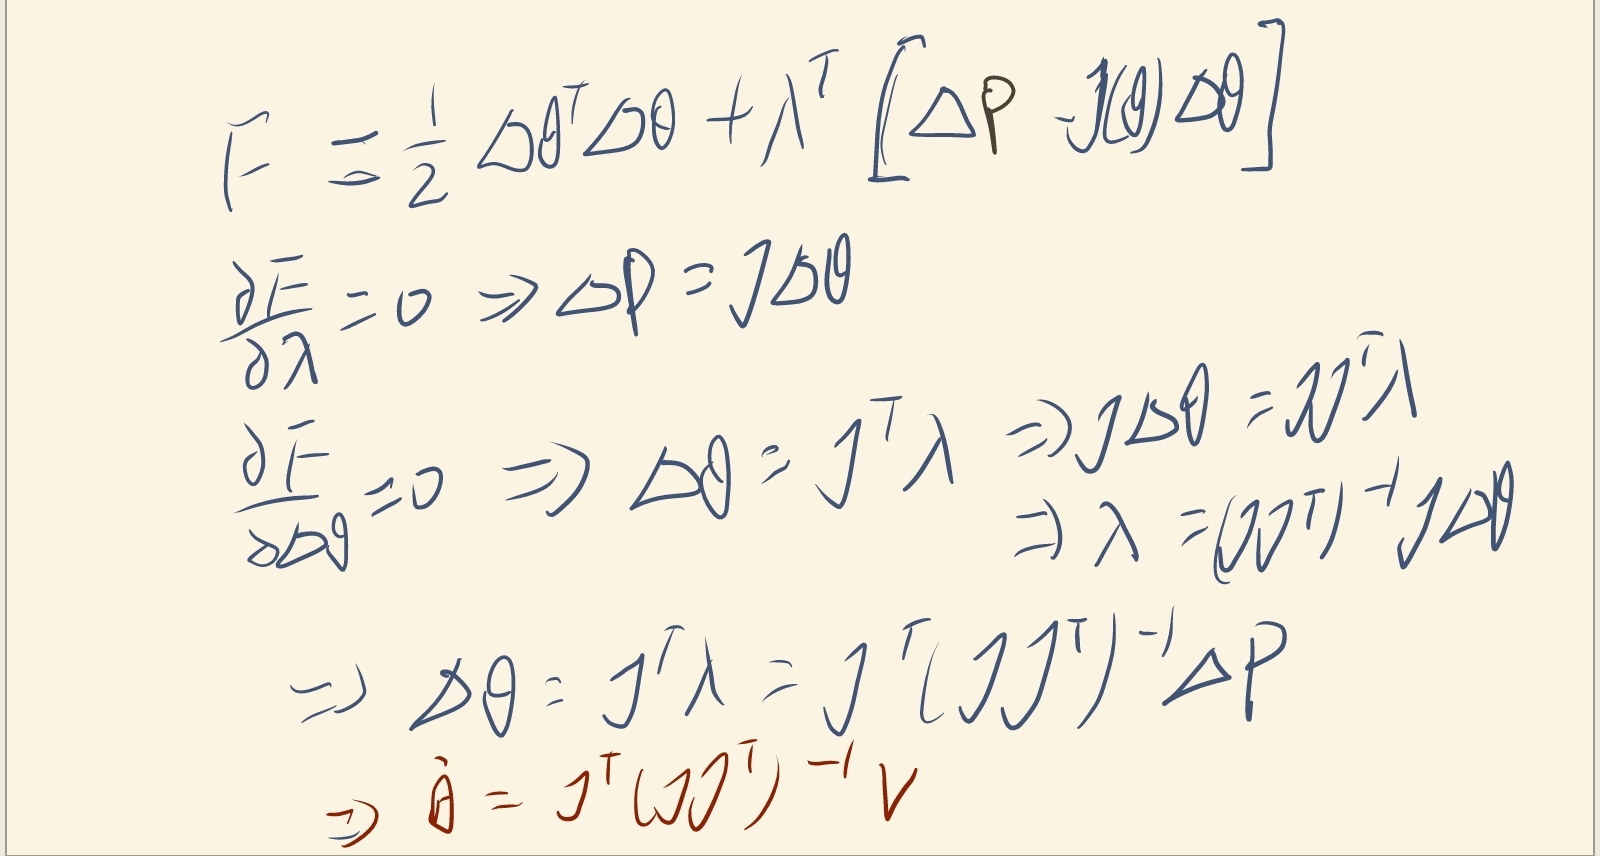 F = 1/2 Δθᵀ Δθ + λᵀ [ΔP - J(θ) Δθ]
∂F/∂λ = 0 ⇒ ΔP = JΔθ
∂F/∂Δθ = 0 ⇒ Δθ = Jᵀλ ⇒ JΔθ = JJᵀλ
⇒ λ = (JJᵀ)⁻¹JΔθ
⇒ Δθ = Jᵀλ = Jᵀ(JJᵀ)⁻¹ΔP
⇒ θ̇ = Jᵀ(JJᵀ)⁻¹ V